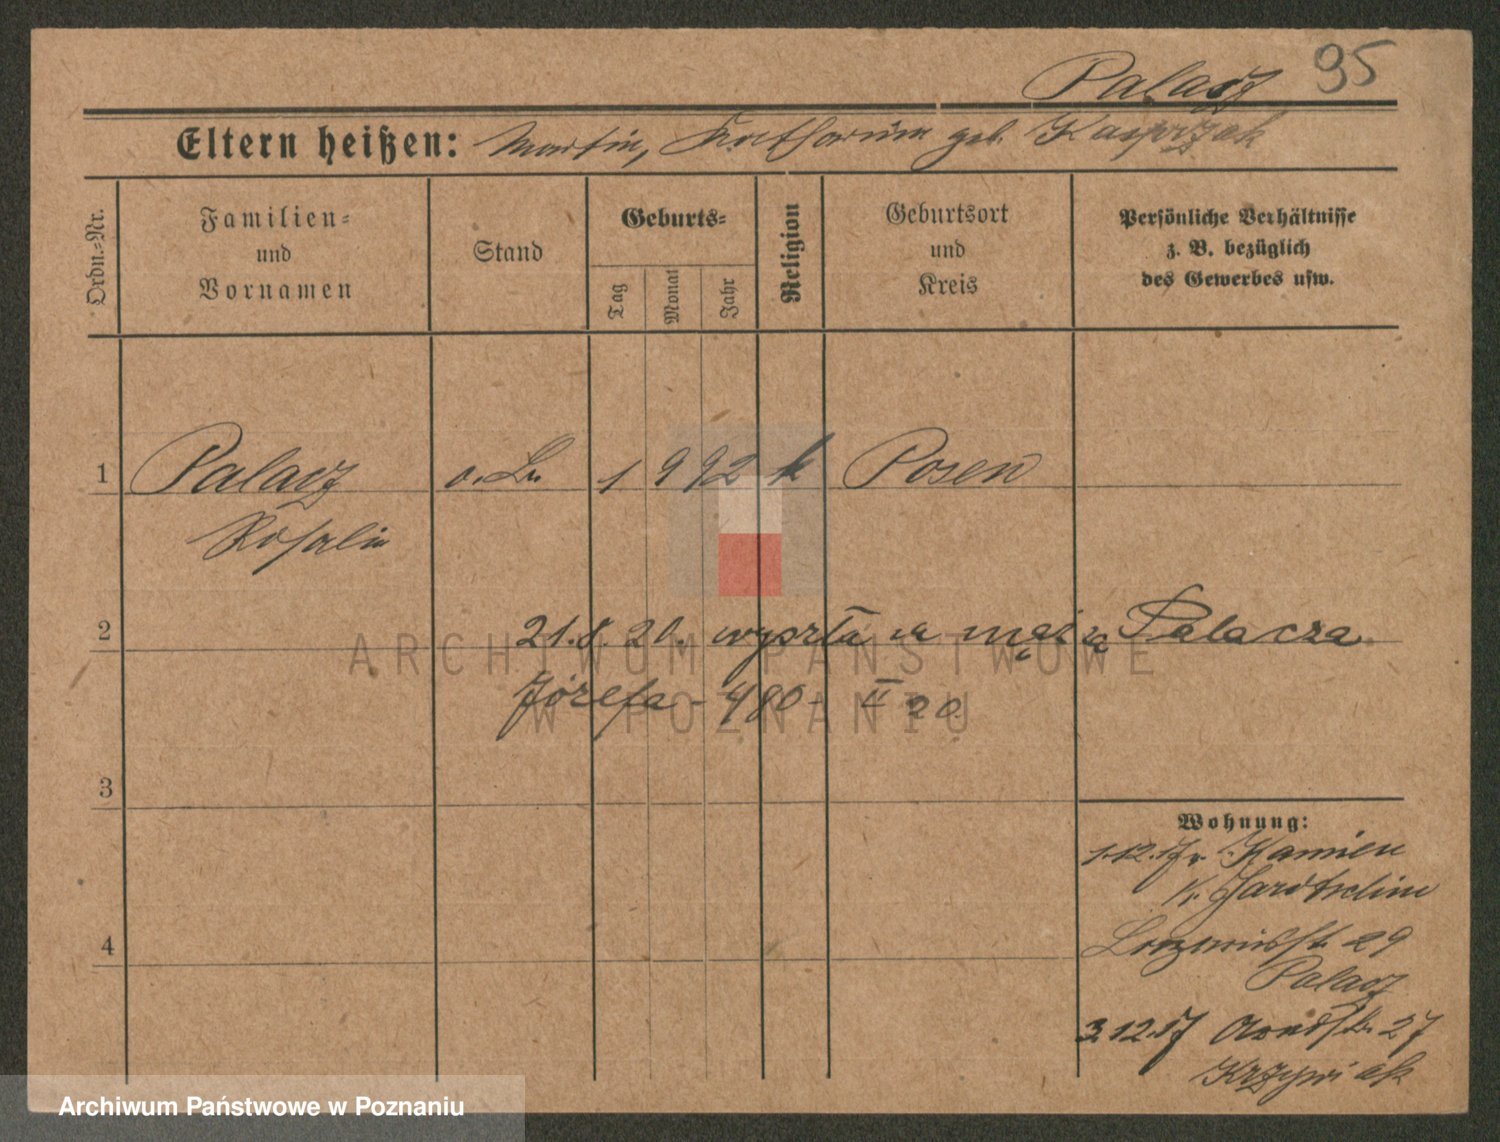 Palacz 95
Eltern heißen: Martin, Katharina geb. Kasprzak
Ordn.=Nr.
Familien=
und
Vornamen
Stand
Geburts=
Tag
Monat
Jahr
Religion
Geburtsort
und
Kreis
Persönliche Verhältnisse
z. B. bezüglich
des Gewerbes usw.
1 Palacz o. Br. 1 9 92 k Posen
Rosalia
2 21.8.20. wyszła za mąż za Palacza
Józefa - 480 - II 20
ARCHIWUM PAŃSTWOWE
W POZNANIU
3
Wohnung:
1.12.17 v. Kamien
K. Jarotschin
4
29
Palacz
3.12.17 27
Krzywiak
Archiwum Państwowe w Poznaniu